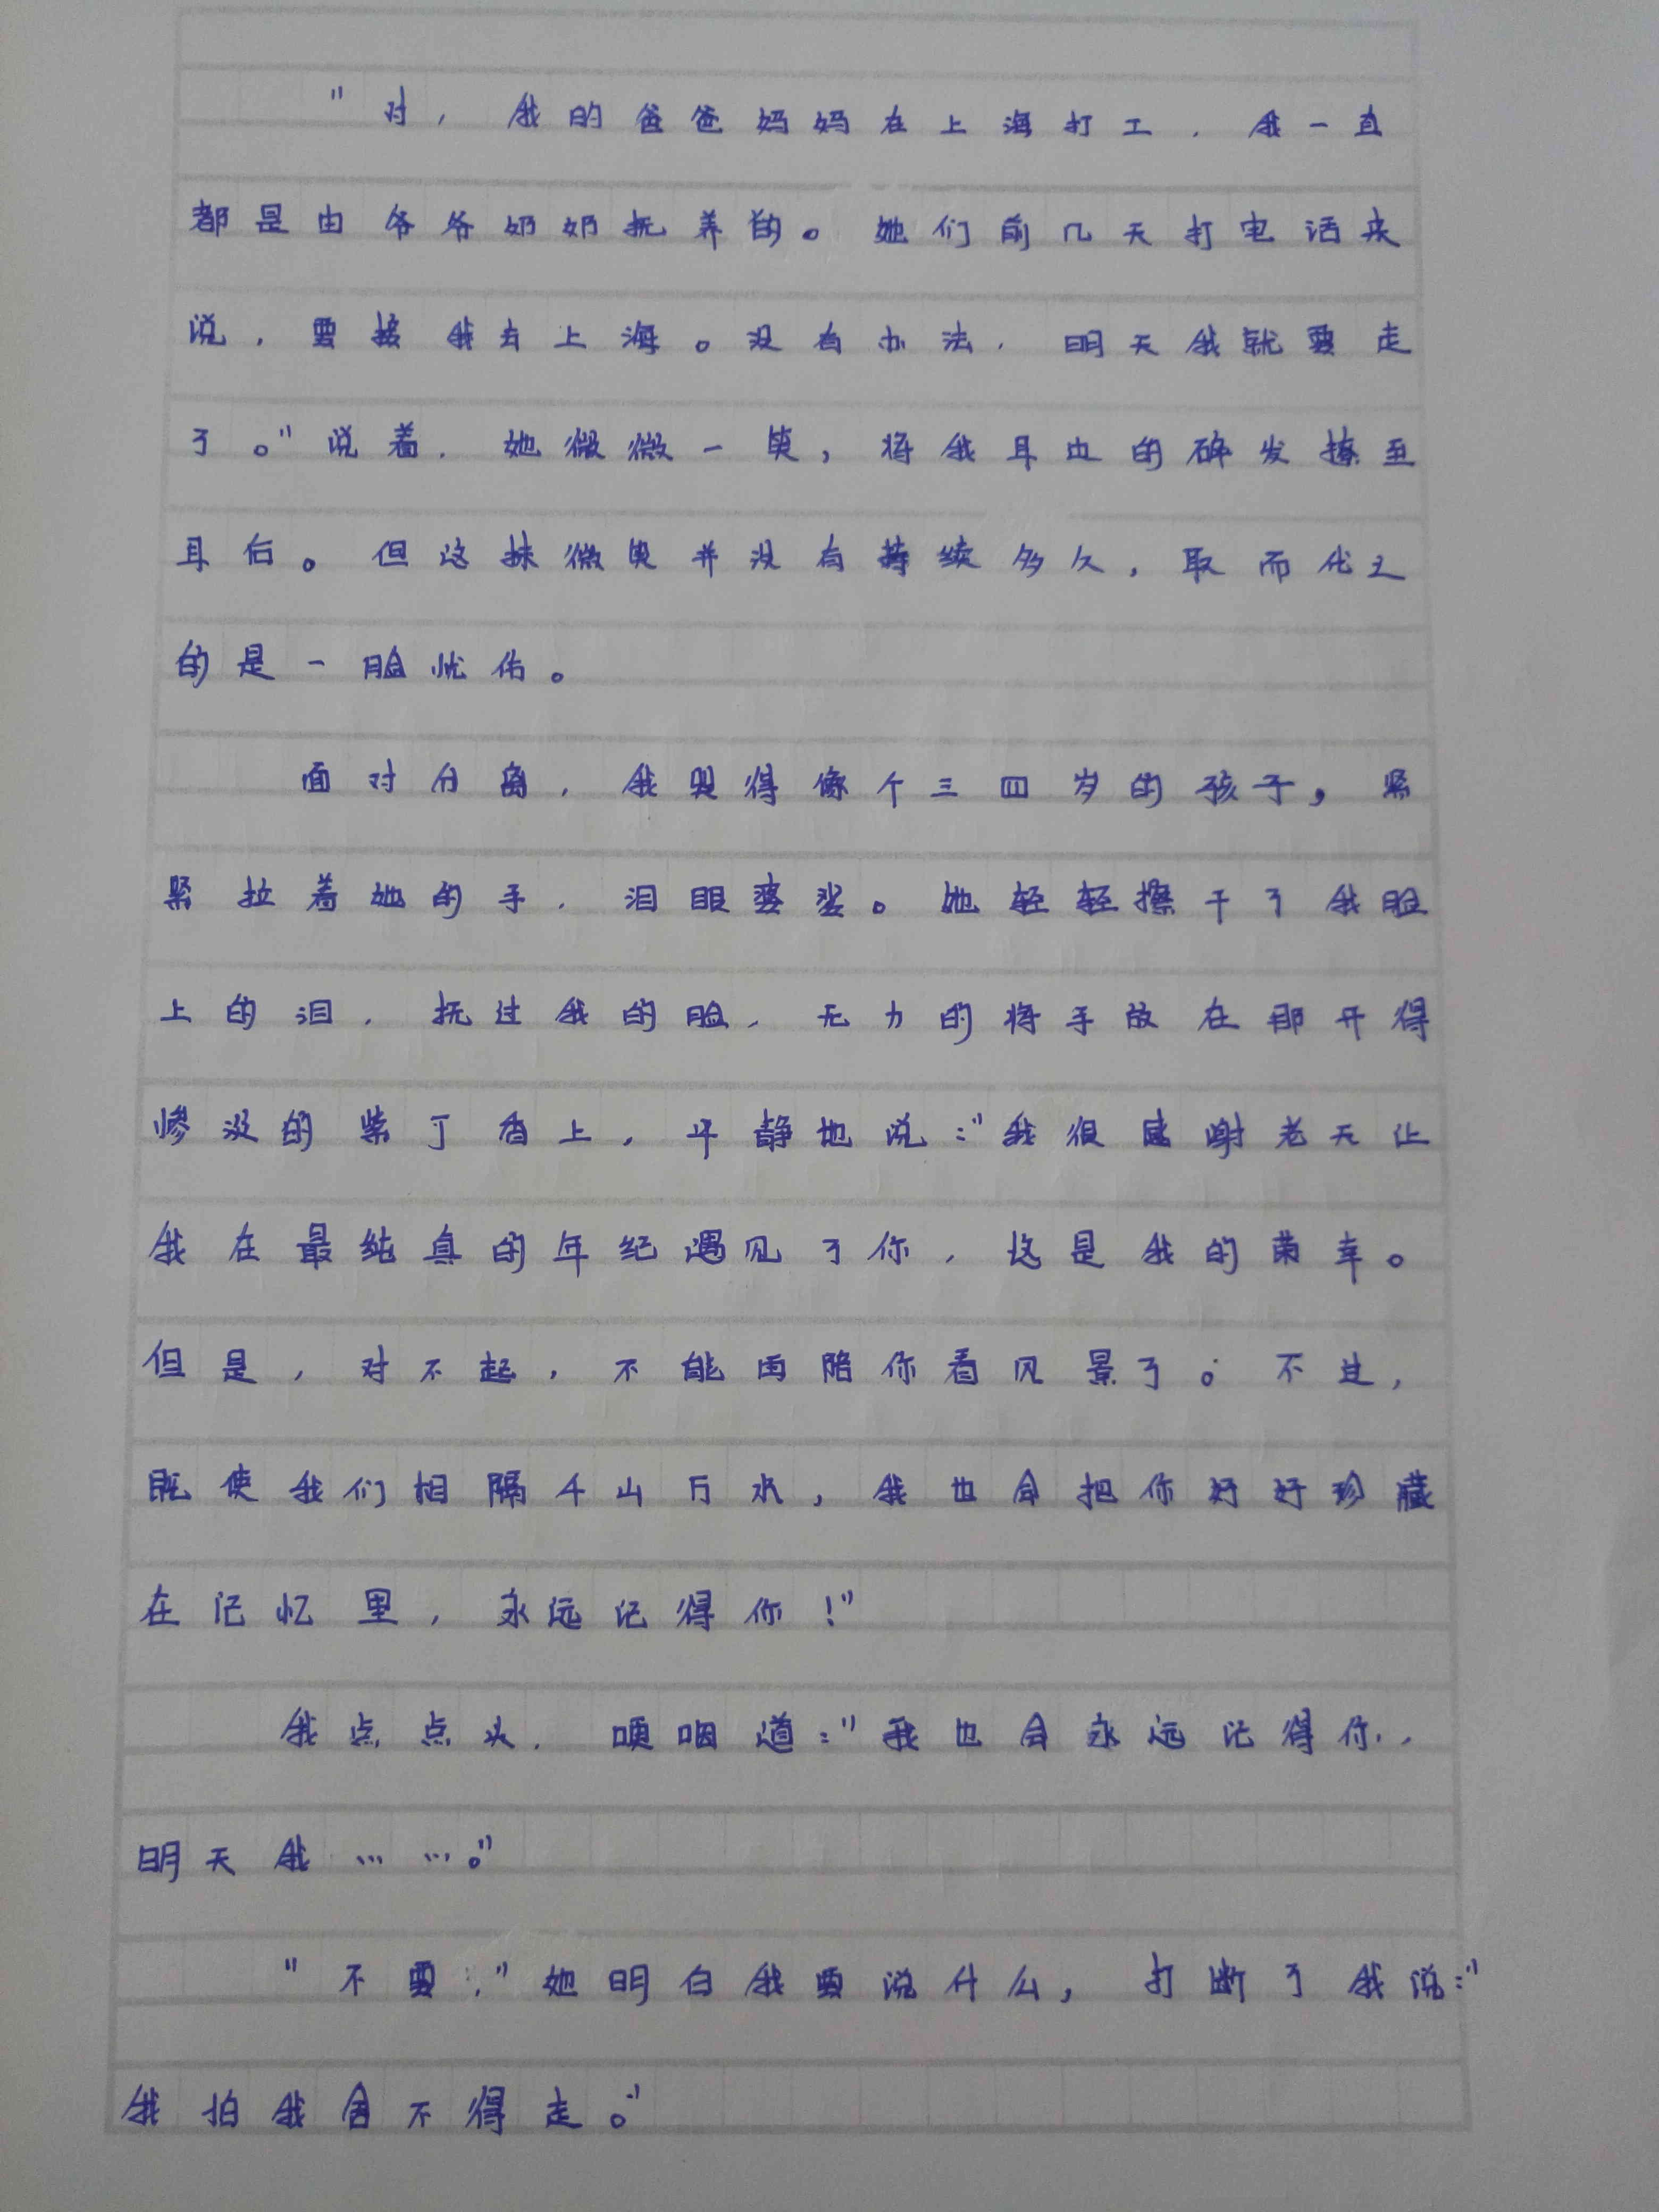 "对，我的爸爸妈妈在上海打工，我一直
都是由爷爷奶奶抚养的。她们前几天打电话来
说，要接我去上海。没有办法，明天我就要走
了。"说着，她微微一笑，将我耳边的碎发撩至
耳后。但这抹微笑并没有持续多久，取而代之
的是一脸忧伤。
面对分离，我哭得像个三四岁的孩子，紧
紧拉着她的手，泪眼婆娑。她轻轻擦干了我脸
上的泪，抚过我的脸，无力的将手放在那开得
惨淡的紫丁香上，平静地说："我很感谢老天让
我在最纯真的年纪遇见了你，这是我的荣幸。
但是，对不起，不能再陪你看风景了。不过，
既使我们相隔千山万水，我也会把你好好珍藏
在记忆里，永远记得你！"
我点点头，哽咽道："我也会永远记得你，
明天我……。"
"不要，"她明白我要说什么，打断了我说："
我怕我舍不得走。"